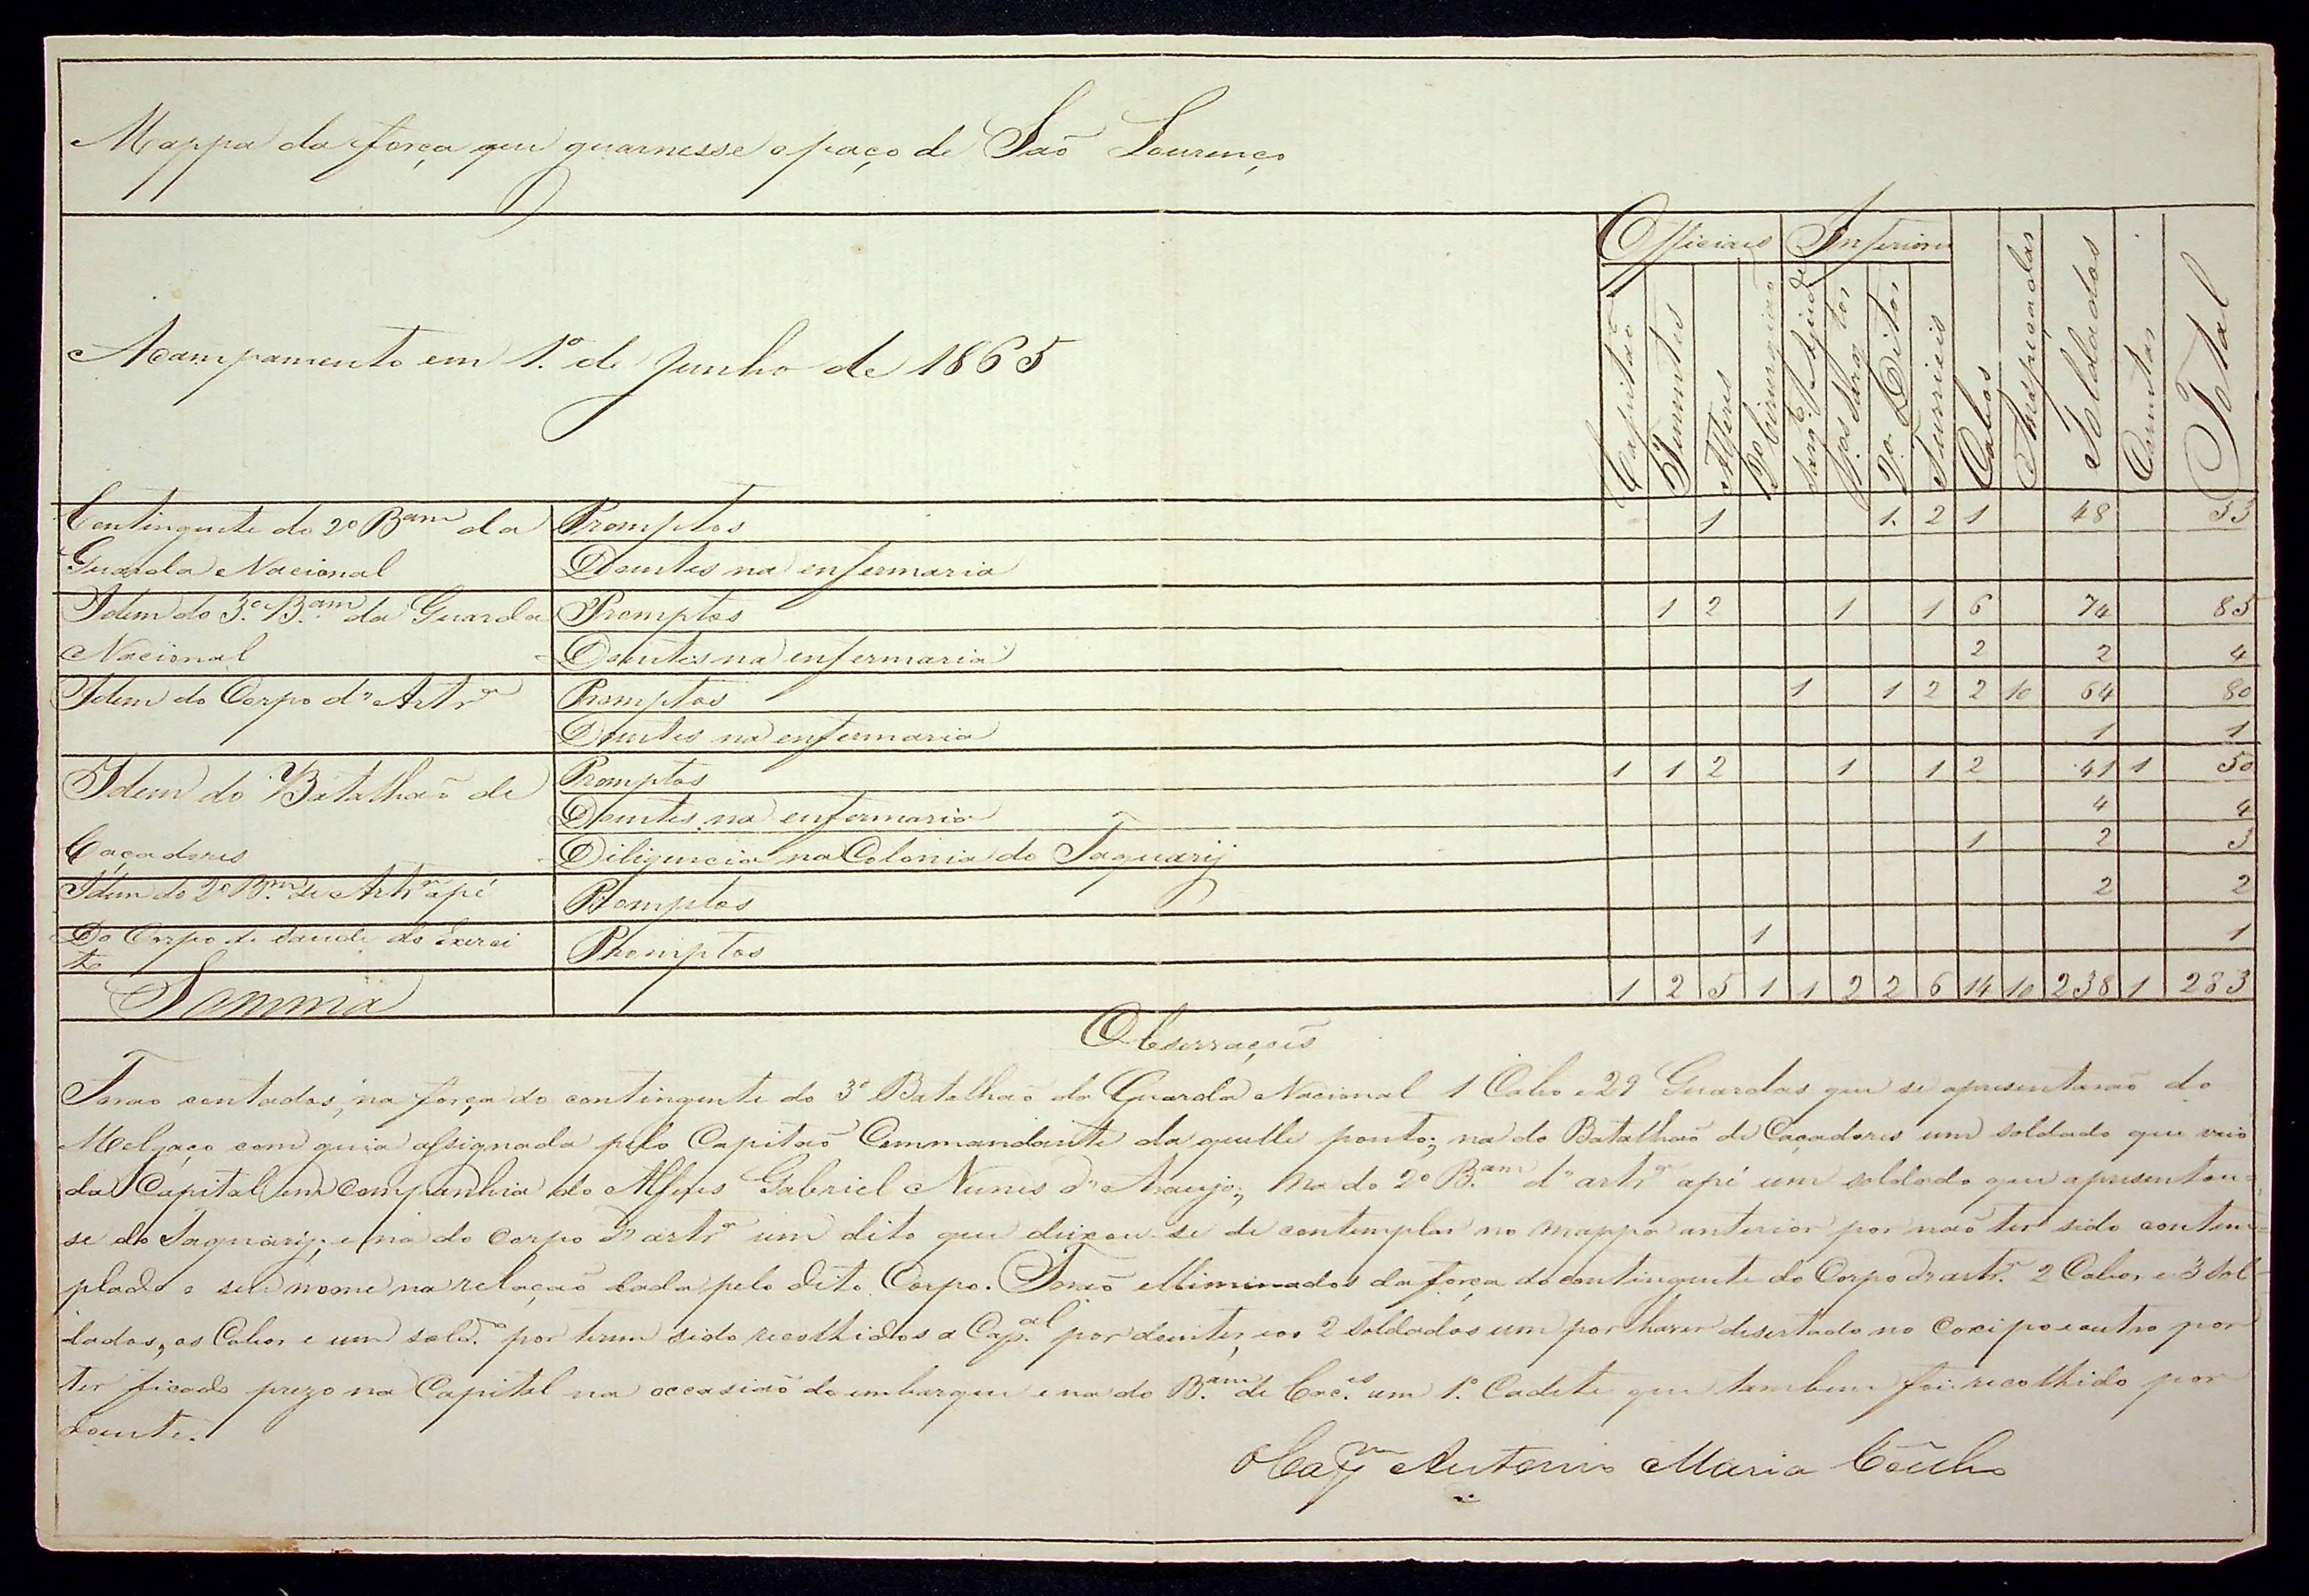 Mappa da força que guarnesse o paço de São Lourenço
Acampamento em 1.º de Junho de 1865
Officiaes Inferiores
Capitão Tenentes Alferes 2º Cirurgião Sargtº Ajude 1.os Sargtos 2.os Ditos Furrieis Cabos Anspeçadas Soldados Cornetas Total
Contingente do 2º Bam da Promptos 1 1. 2 1 48 53
Guarda Nacional Doentes na enfermaria
Idem do 3.º B.am da Guarda Promptos 1 2 1 1 6 74 85
Nacional Doentes na enfermaria 2 2 4
Idem do Corpo d' Artrª Promptos 1 1 2 2 10 64 80
Doentes na enfermaria 1 1
Idem do Batalhão de Promptos 1 1 2 1 1 2 41 1 50
Doentes na enfermaria 4 4
Caçadores Diligencia na Colonia do Taquarij 1 2 3
Idem do 2º B.m de Artrª apé Promptos 2 2
Do Corpo de Saude do Exerci Promptos 1 1
to
Somma 1 2 5 1 1 2 2 6 14 10 238 1 283
Observaçoẽs
Forao contados, na força do contingente do 3º Batalhão da Guarda Nacional 1 Cabo e 29 Guardas que se apresentarão do
Melgaço com guia assignada pelo Capitão Commandante da quelle ponto; na do Batalhão de Caçadores um soldado que veio
da Capital em companhia do Alferes Gabriel Nunes d' Araujo; na do 2º B.am d' artrª apé um soldado que apresentou=
se do Taquarij; e na do Corpo d' artrª um dito que deixou-se de contemplar no mappa anterior por não ter sido contem=
plado o seu nome na relação dada pelo dito Corpo. Forão elliminados da força do contingente do Corpo d' artr.ª 2 Cabos e 3 Sol-
dados, os Cabos e um sold.º por terem sido recolhidos a Cap.al por doentes, e os 2 soldados um por haver desertado no Coxipo e outro por
ter ficado prezo na Capital na occasião do embarque e na do B.am de Cac.es um 1.º Cadete que tambem foi recolhido por
doente.
O Capm Antonio Maria Coêlho